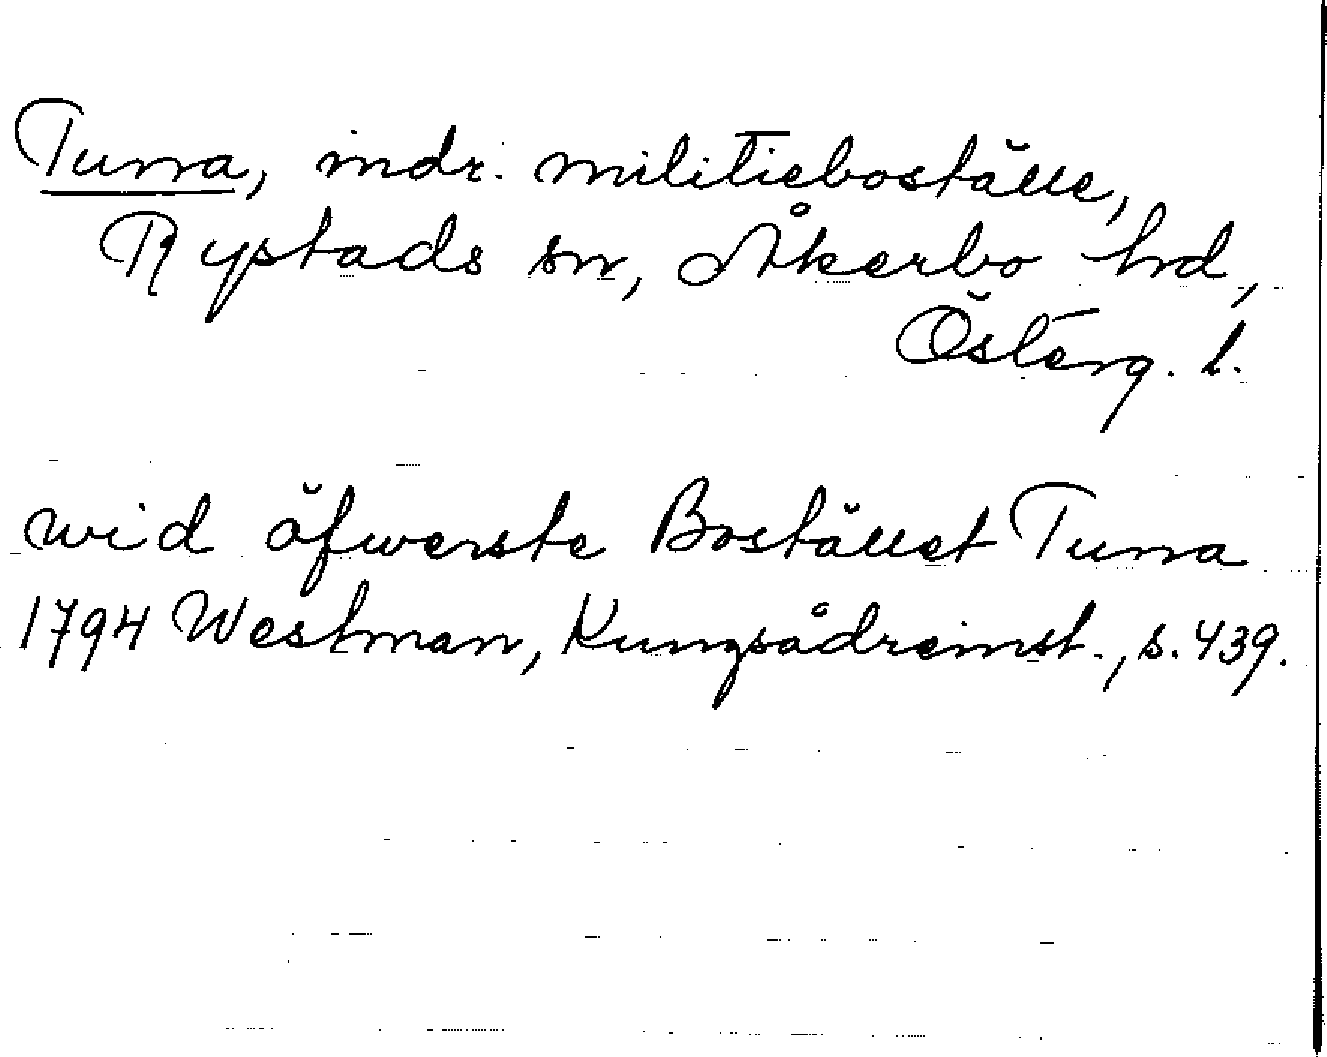 Tunna, indr. militieboställe,
Rystads sn, Åkerbo hd,
Österg. l.
wid öfwerste Bostället Tunna
1794 Westman, Kungsådreinst., s. 439.